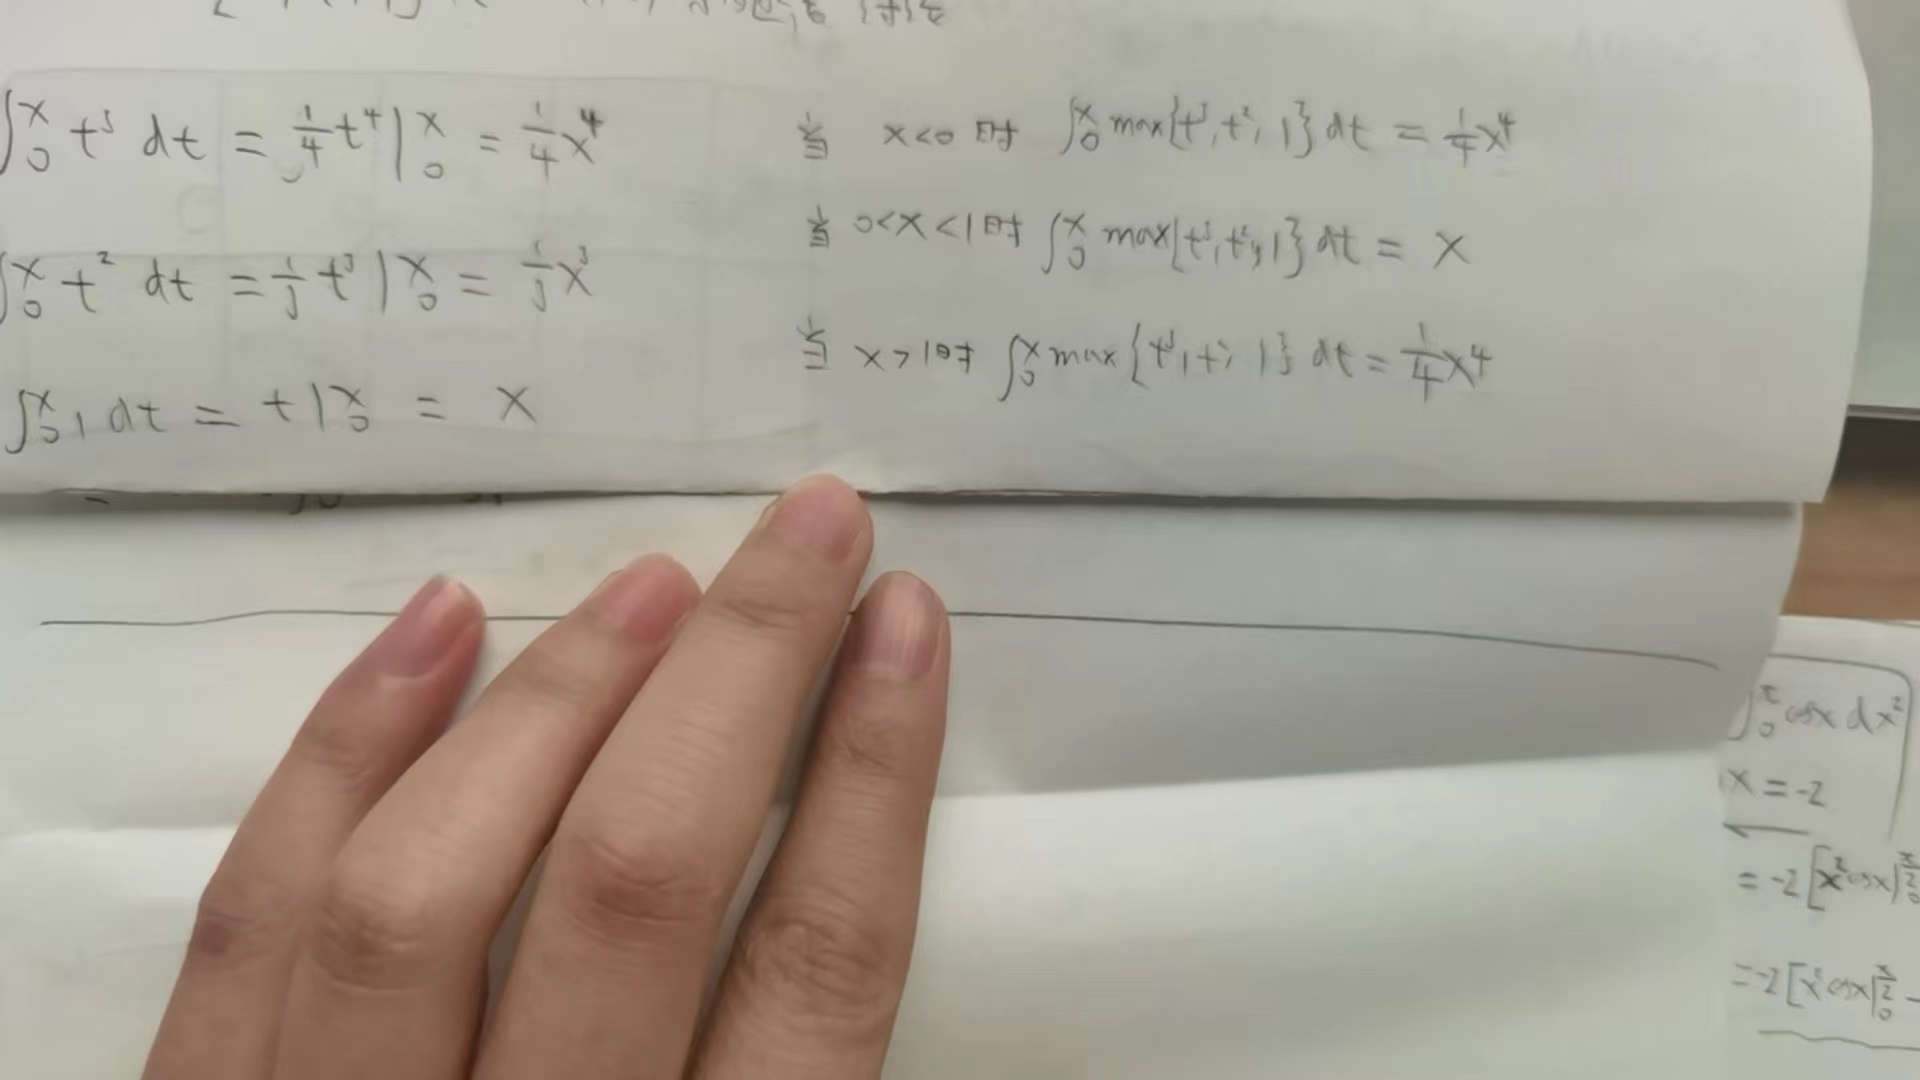 ∫₀ˣ t³ dt = 1/4 t⁴ |₀ˣ = 1/4 x⁴
∫₀ˣ t² dt = 1/3 t³ |₀ˣ = 1/3 x³
∫₀ˣ 1 dt = t |₀ˣ = x
当 x<0 时 ∫₀ˣ max{t³, t², 1} dt = 1/4 x⁴
当 0<x<1时 ∫₀ˣ max{t³, t², 1} dt = x
当 x>1时 ∫₀ˣ max{t³, t², 1} dt = 1/4 x⁴
cosx dx²
x = -2
= -2 [x² cosx |
= -2 [x² cosx |